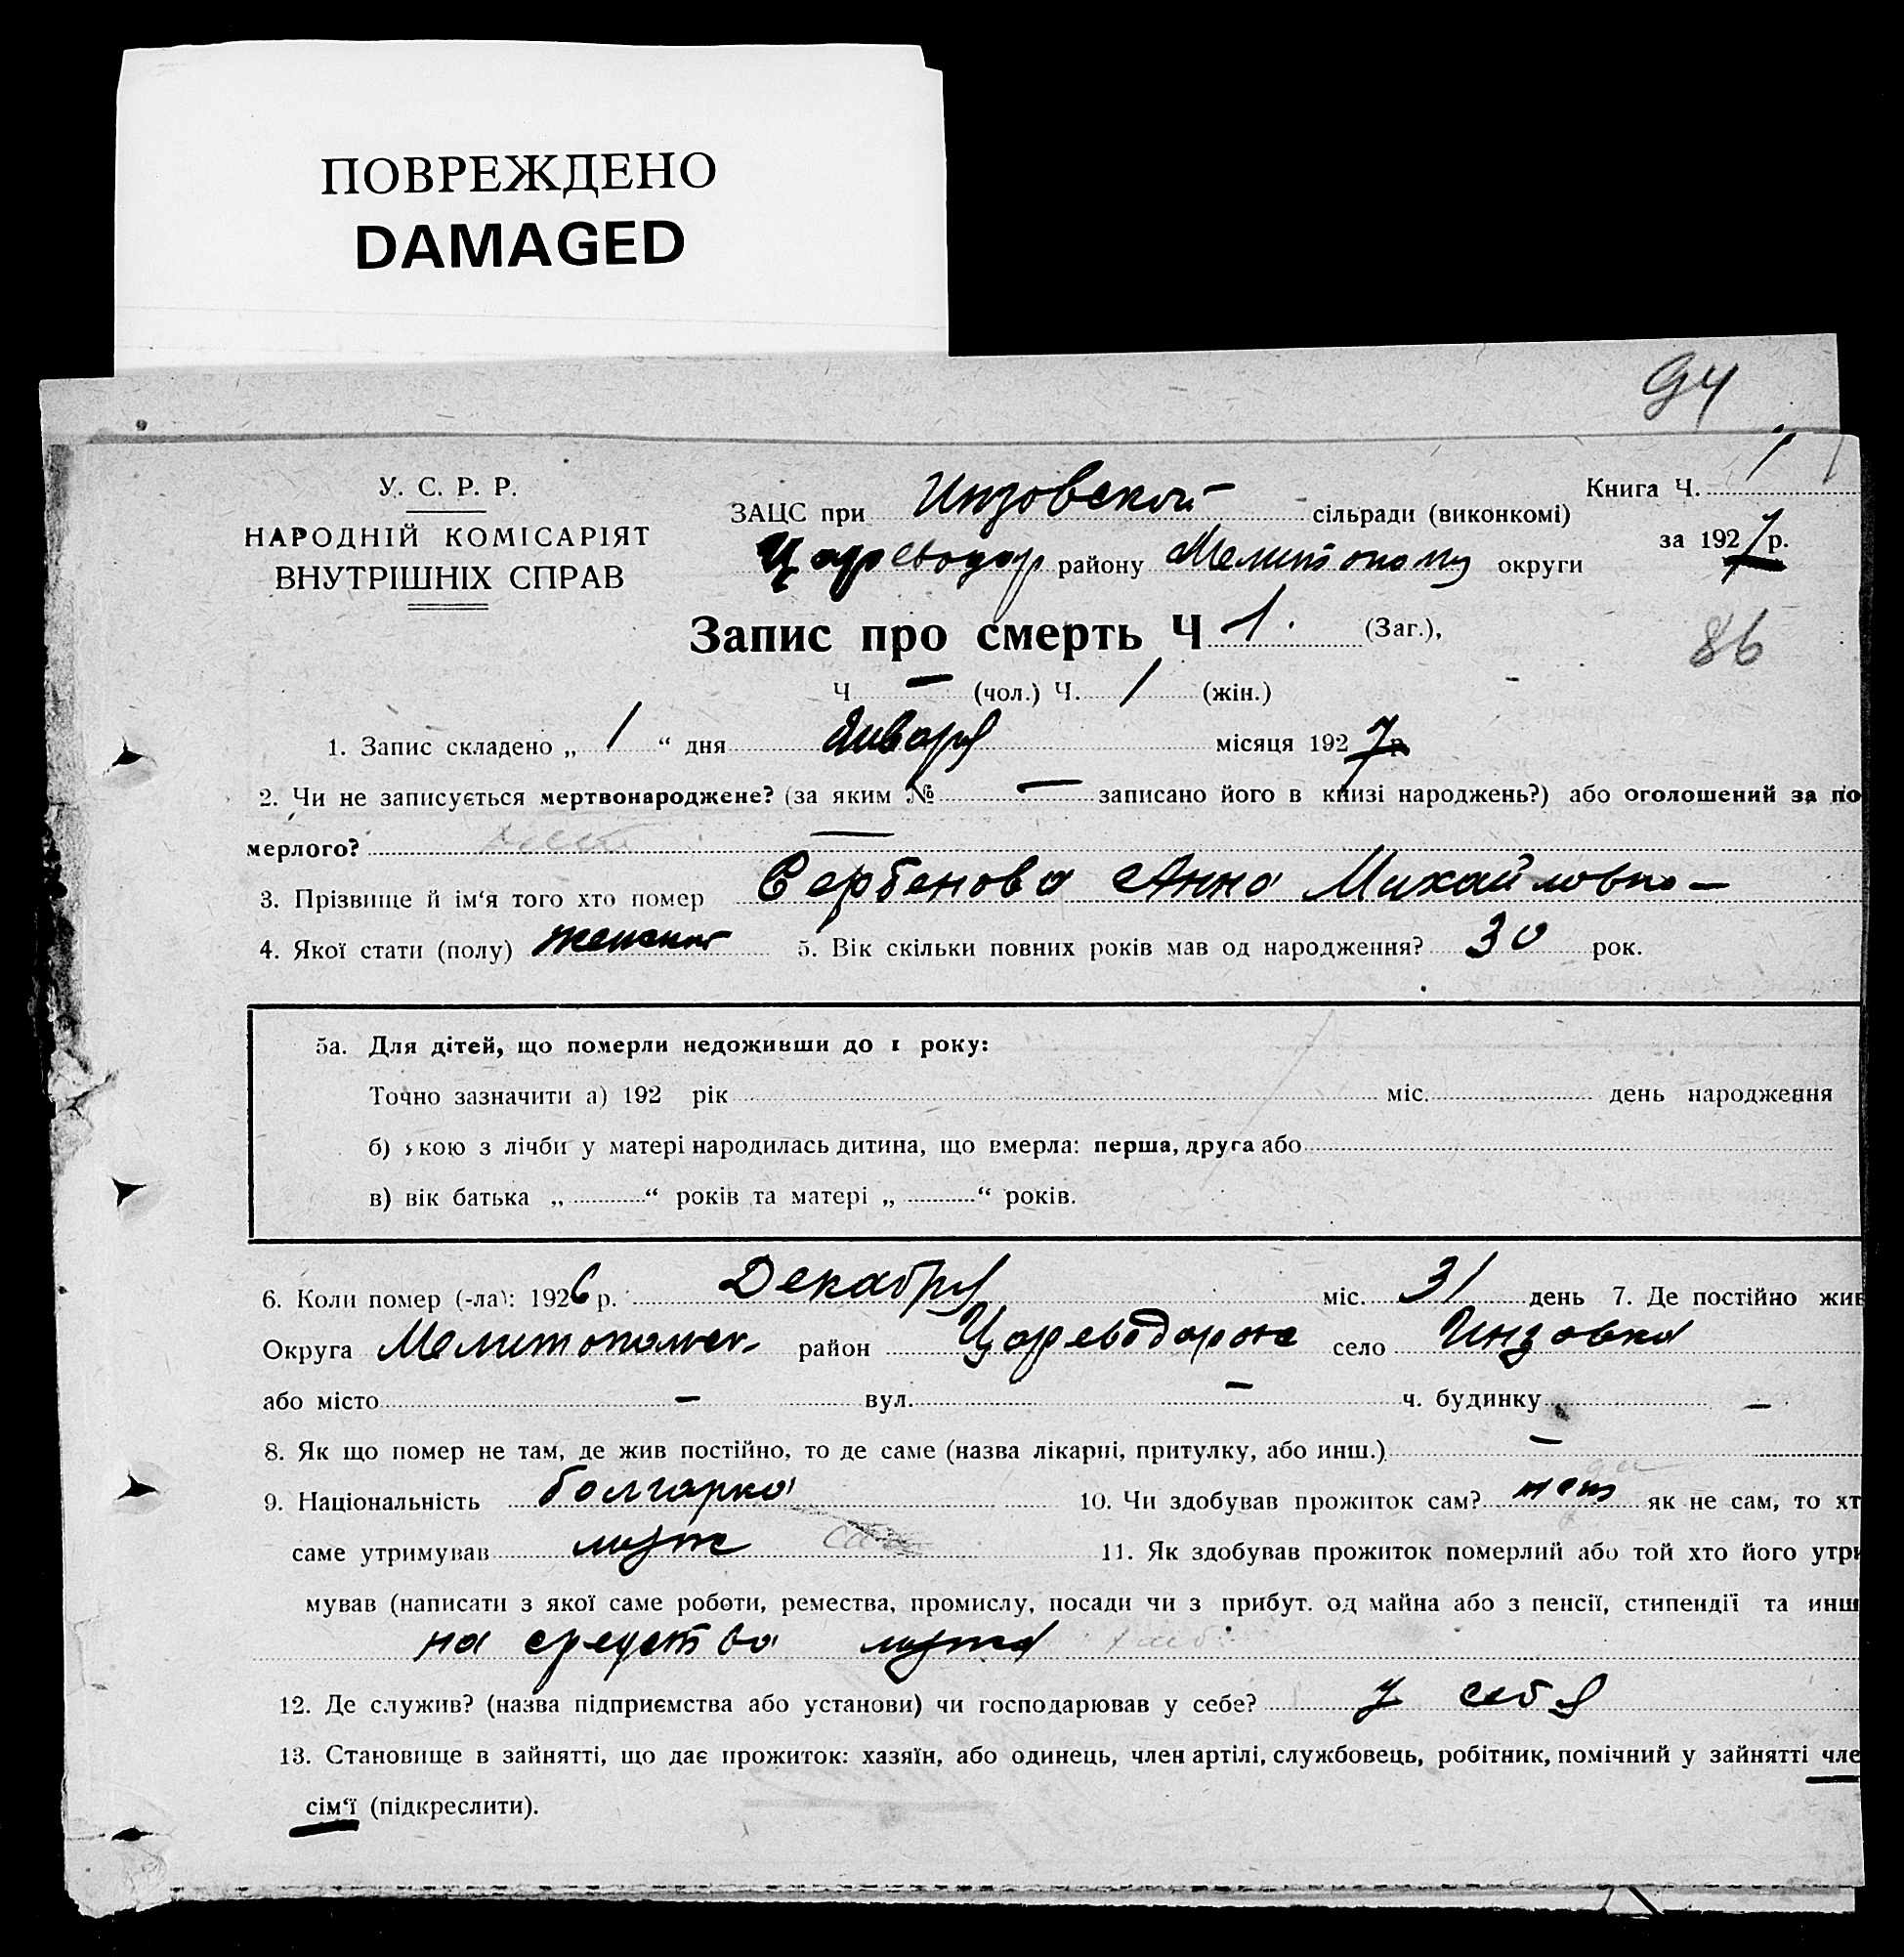 ПОВРЕЖДЕНО
DAMAGED
94
У. С. Р. Р.
НАРОДНІЙ КОМІСАРІЯТ
ВНУТРІШНІХ СПРАВ
ЗАЦС при Инзовской сільради (виконкомі)
Цареводар району Мелитопол округи
Книга Ч. 1
за 1927 р.
Запис про смерть Ч 1. (Заг.),
86
Ч — (чол.) Ч. 1 (жін.)
1. Запис складено „ 1 “ дня Января місяця 1927 р.
2. Чи не записується мертвонароджене? (за яким № — записано його в книзі народжень?) або оголошений за по
мерлого? —
3. Прізвище й ім‘я того хто помер Сербенова Анна Михайловна —
4. Якої стати (полу) женский 5. Вік скільки повних років мав од народження? 30 рок.
5а. Для дітей, що померли недоживши до 1 року:
Точно зазначити а) 192 рік міс. день народження
б) якою з лічби у матері народилась дитина, що вмерла: перша, друга або
в) вік батька „ “ років та матері „ “ років.
6. Коли помер (-ла): 1926 р. Декабря міс. 31 день 7. Де постійно жив
Округа Мелитопольск. район Цареводарске село Инзовка
або місто — вул. — ч. будинку —
8. Як що помер не там, де жив постійно, то де саме (назва лікарні, притулку, або инш.) —
9. Національність болгарка 10. Чи здобував прожиток сам? нет як не сам, то хт
саме утримував муж 11. Як здобував прожиток померлий або той хто його утри
мував (написати з якої саме роботи, ремества, промислу, посади чи з прибут. од майна або з пенсії, стипендії та инш
на средства мужа
12. Де служив? (назва підприємства або установи) чи господарював у себе? у себя
13. Становище в зайнятті, що дає прожиток: хазяїн, або одинець, член артілі, службовець, робітник, помічний у зайнятті чле
сім‘ї (підкреслити).